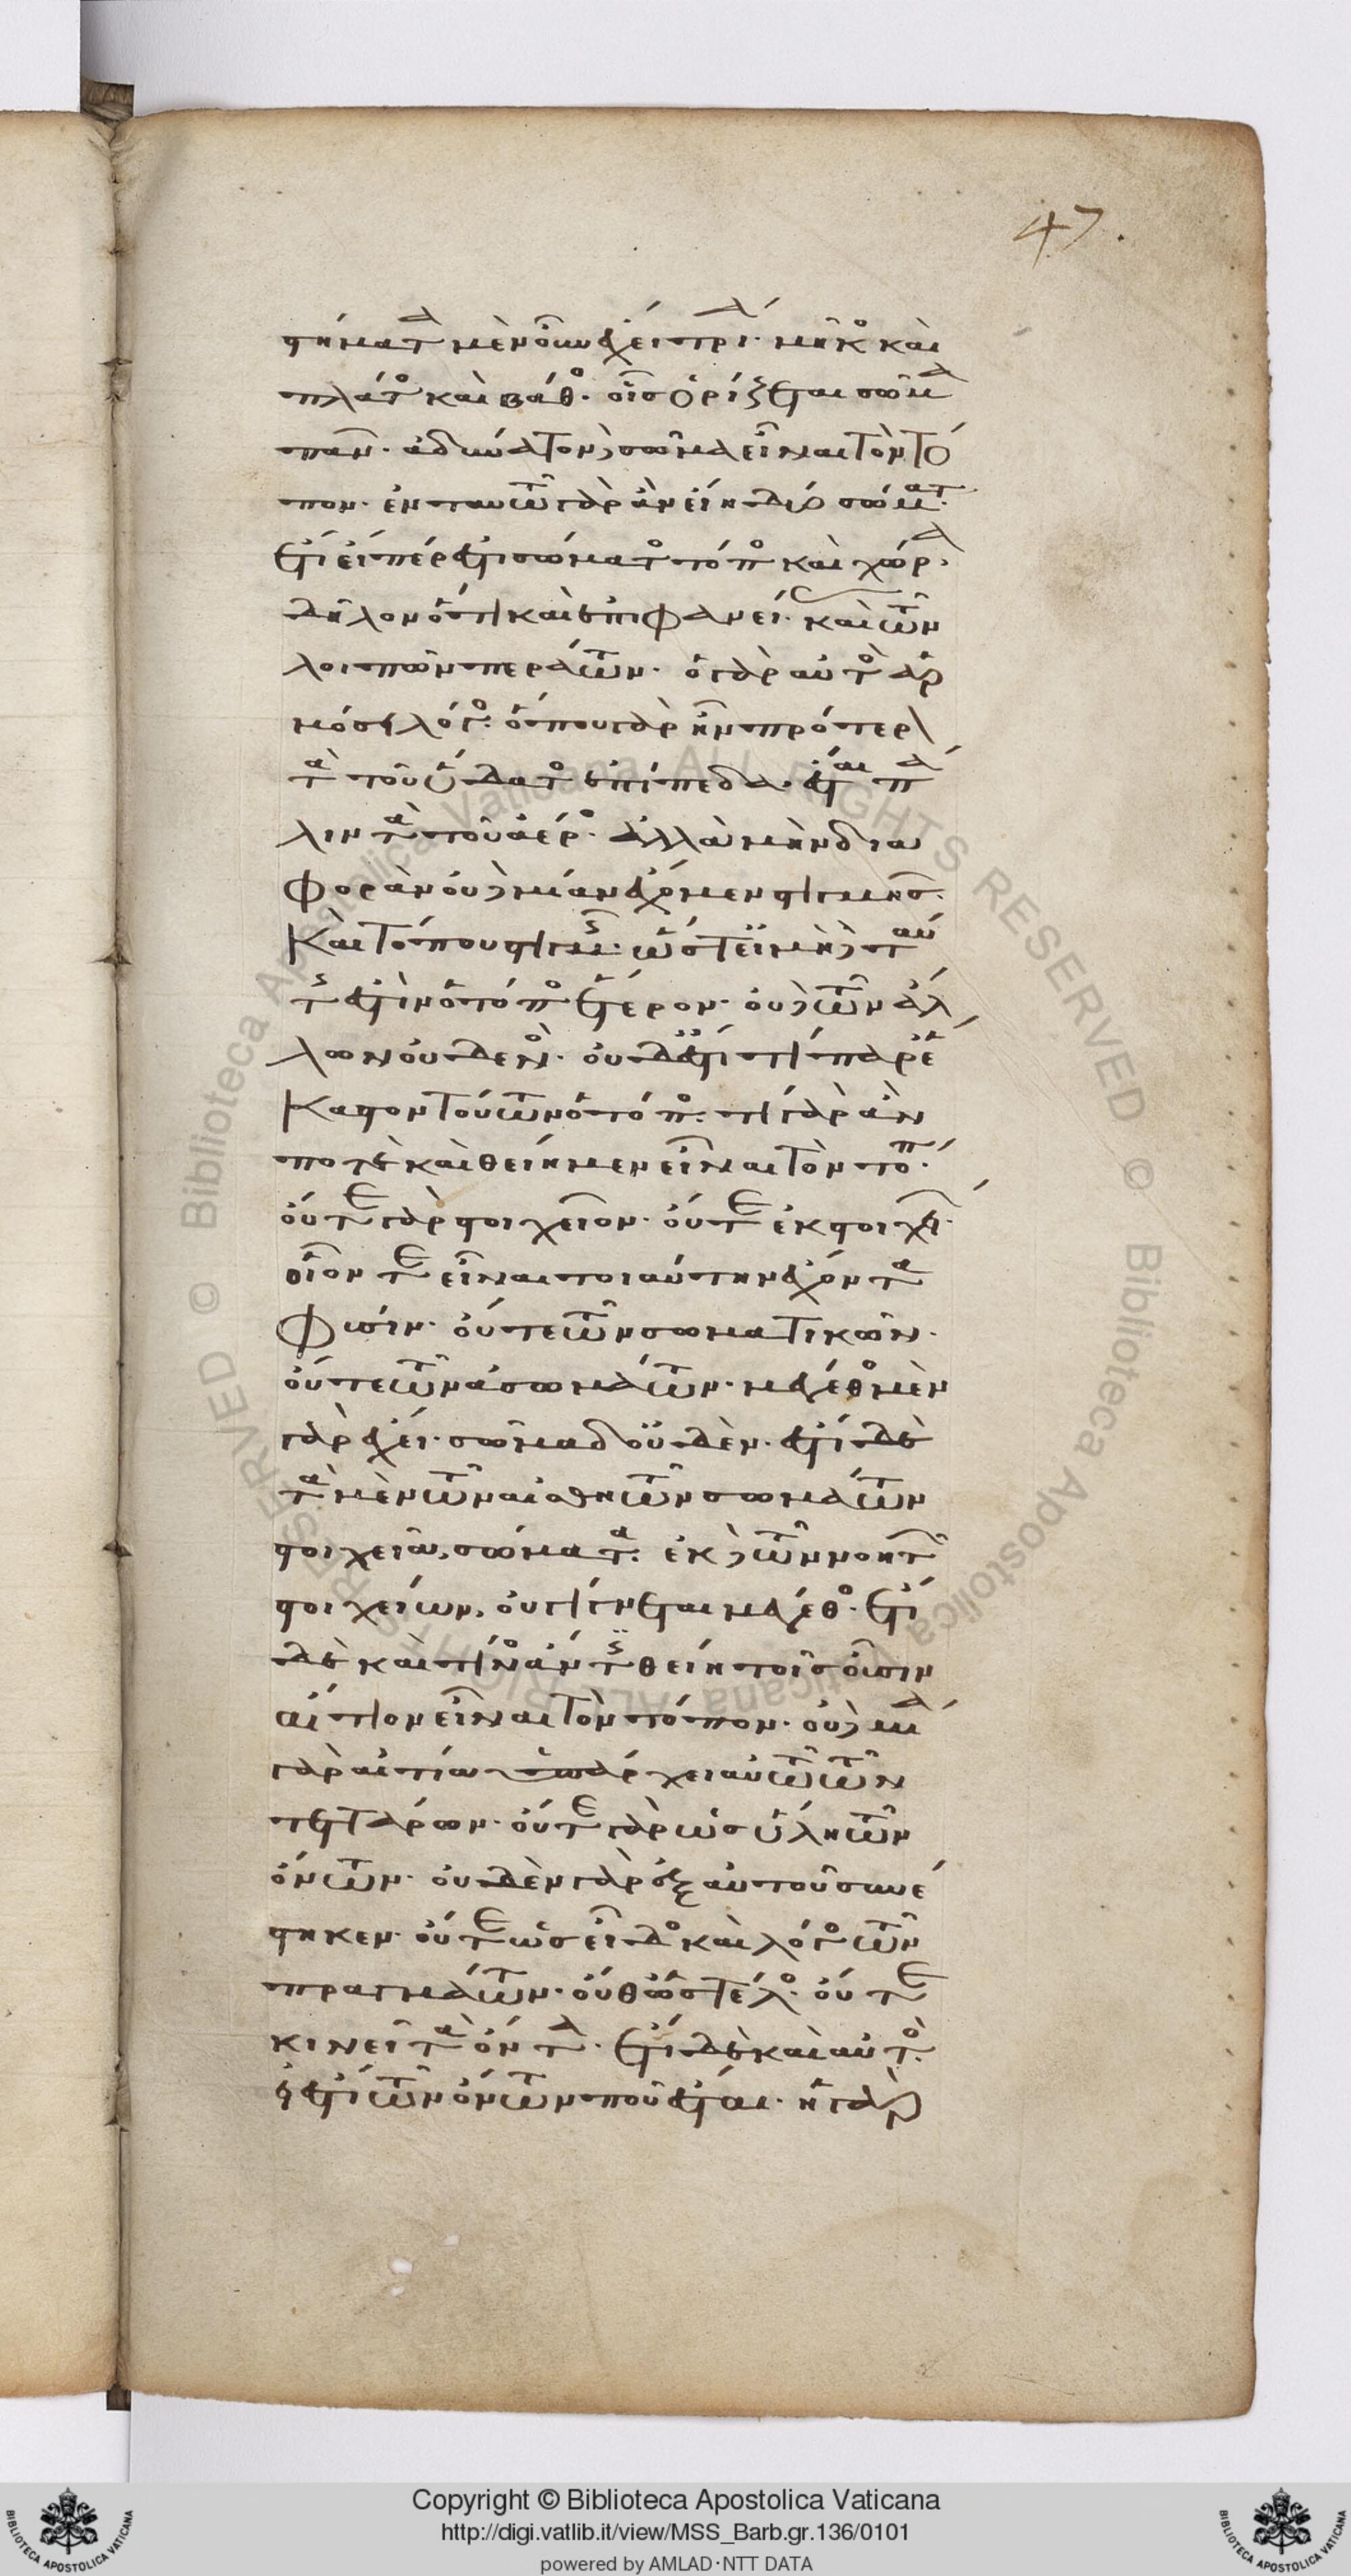 47.
στήματα μὲν οὖν ἔχει τρία· μῆκος καὶ
πλάτος καὶ βάθος· οἷς ὁρίζεται σῶμα
πᾶν· ἀδύνατον δὲ σῶμα εἶναι τὸν τό
πον· ἐν ταυτῷ γὰρ ἂν εἴη δύο σώματα·
ἔτι εἴπερ ἐστὶ σώματος τόπος καὶ χώρα·
δῆλον ὅτι καὶ ἐπιφανείας· καὶ τῶν
λοιπῶν περάτων· ὁ γὰρ αὐτὸς ἁρ
μόσει λόγος· ὅπου γὰρ ἦν πρότερον
τὰ τοῦ ὕδατος ἐπίπεδα· ἔσται πά
λιν τὰ τοῦ ἀέρος· ἀλλὰ μὴν δια
φορὰν οὐδεμίαν ἔχομεν στιγμῆς
καὶ τόπου στιγμῆς· ὥστ' εἰ μὴ δὲ ταύ
της ἐστὶν ὁ τόπος ἕτερον· οὐδὲ τῶν ἄλ
λων οὐδενός· οὐδ' ἐστί τι παρ' ἕ
καστον τούτων ὁ τόπος· τί γὰρ ἄν
ποτε καὶ θείημεν εἶναι τὸν τόπον·
οὔτε γὰρ στοιχεῖον· οὔτ' ἐκ στοιχείων
οἷόν τε εἶναι τοιαύτην ἔχοντα
φύσιν· οὔτε τῶν σωματικῶν·
οὔτε τῶν ἀσωμάτων· μέγεθος μὲν
γὰρ ἔχει· σῶμα δ' οὐδέν· ἔστι δὲ
τὰ μὲν τῶν αἰσθητῶν σωμάτων
στοιχεῖα, σώματα· ἐκ δὲ τῶν νοητῶν
στοιχείων, οὐ γίγνεται μέγεθος· ἔτι
δὲ καὶ τίνος ἄν τις θείη τοῖς οὖσιν
αἴτιον εἶναι τὸν τόπον· οὐδεμία
γὰρ αἰτία ὑπάρχει αὐτῷ τῶν
τεττάρων· οὔτε γὰρ ὡς ὕλη τῶν
ὄντων· οὐδὲν γὰρ ἐξ αὐτοῦ συνέ
στηκεν· οὔτε ὡς εἶδος καὶ λόγος τῶν
πραγμάτων· οὔθ' ὡς τέλος· οὔτε
κινεῖ τὰ ὄντα· ἔτι δὲ καὶ αὐτὸς
εἰ ἔστι τῶν ὄντων ποῦ ἔσται· ἡ γὰρ
Copyright © Biblioteca Apostolica Vaticana
http://digi.vatlib.it/view/MSS_Barb.gr.136/0101
powered by AMLAD·NTT DATA